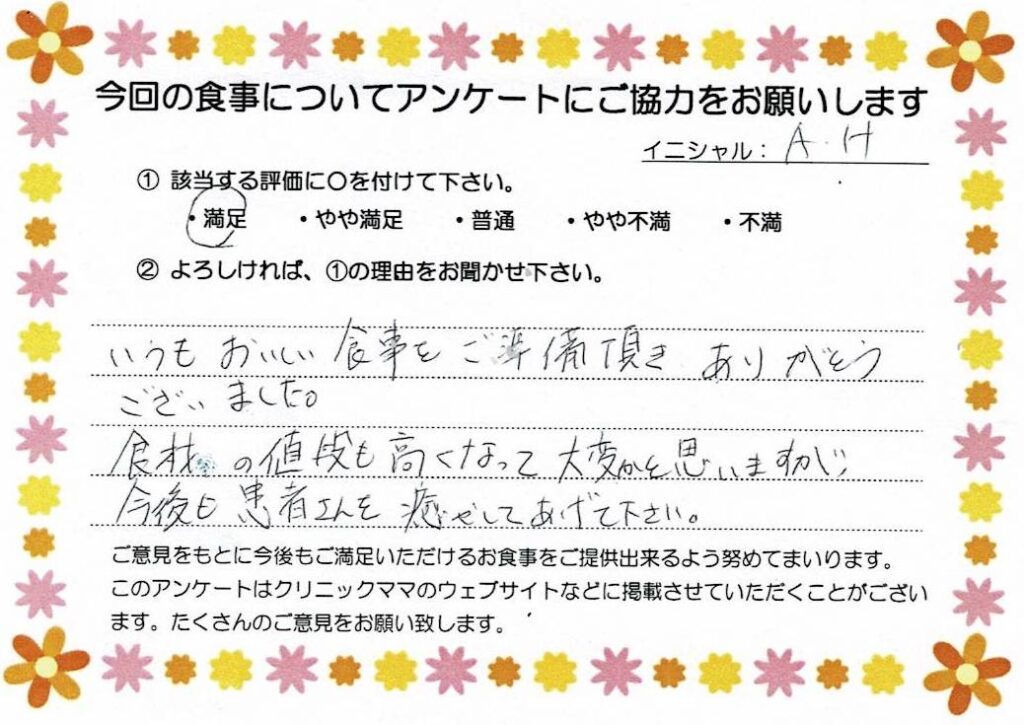 今回の食事についてアンケートにご協力をお願いします
イニシャル： A.H
① 該当する評価に〇を付けて下さい。
・満足 ・やや満足 ・普通 ・やや不満 ・不満
② よろしければ、①の理由をお聞かせ下さい。
いつも おいしい 食事を ご準備頂き ありがとう
ございました。
食材の値段も高くなって大変かと思いますが、
今後も患者さんを癒やしてあげて下さい。
ご意見をもとに今後もご満足いただけるお食事をご提供出来るよう努めてまいります。
このアンケートはクリニックママのウェブサイトなどに掲載させていただくことがござい
ます。たくさんのご意見をお願い致します。